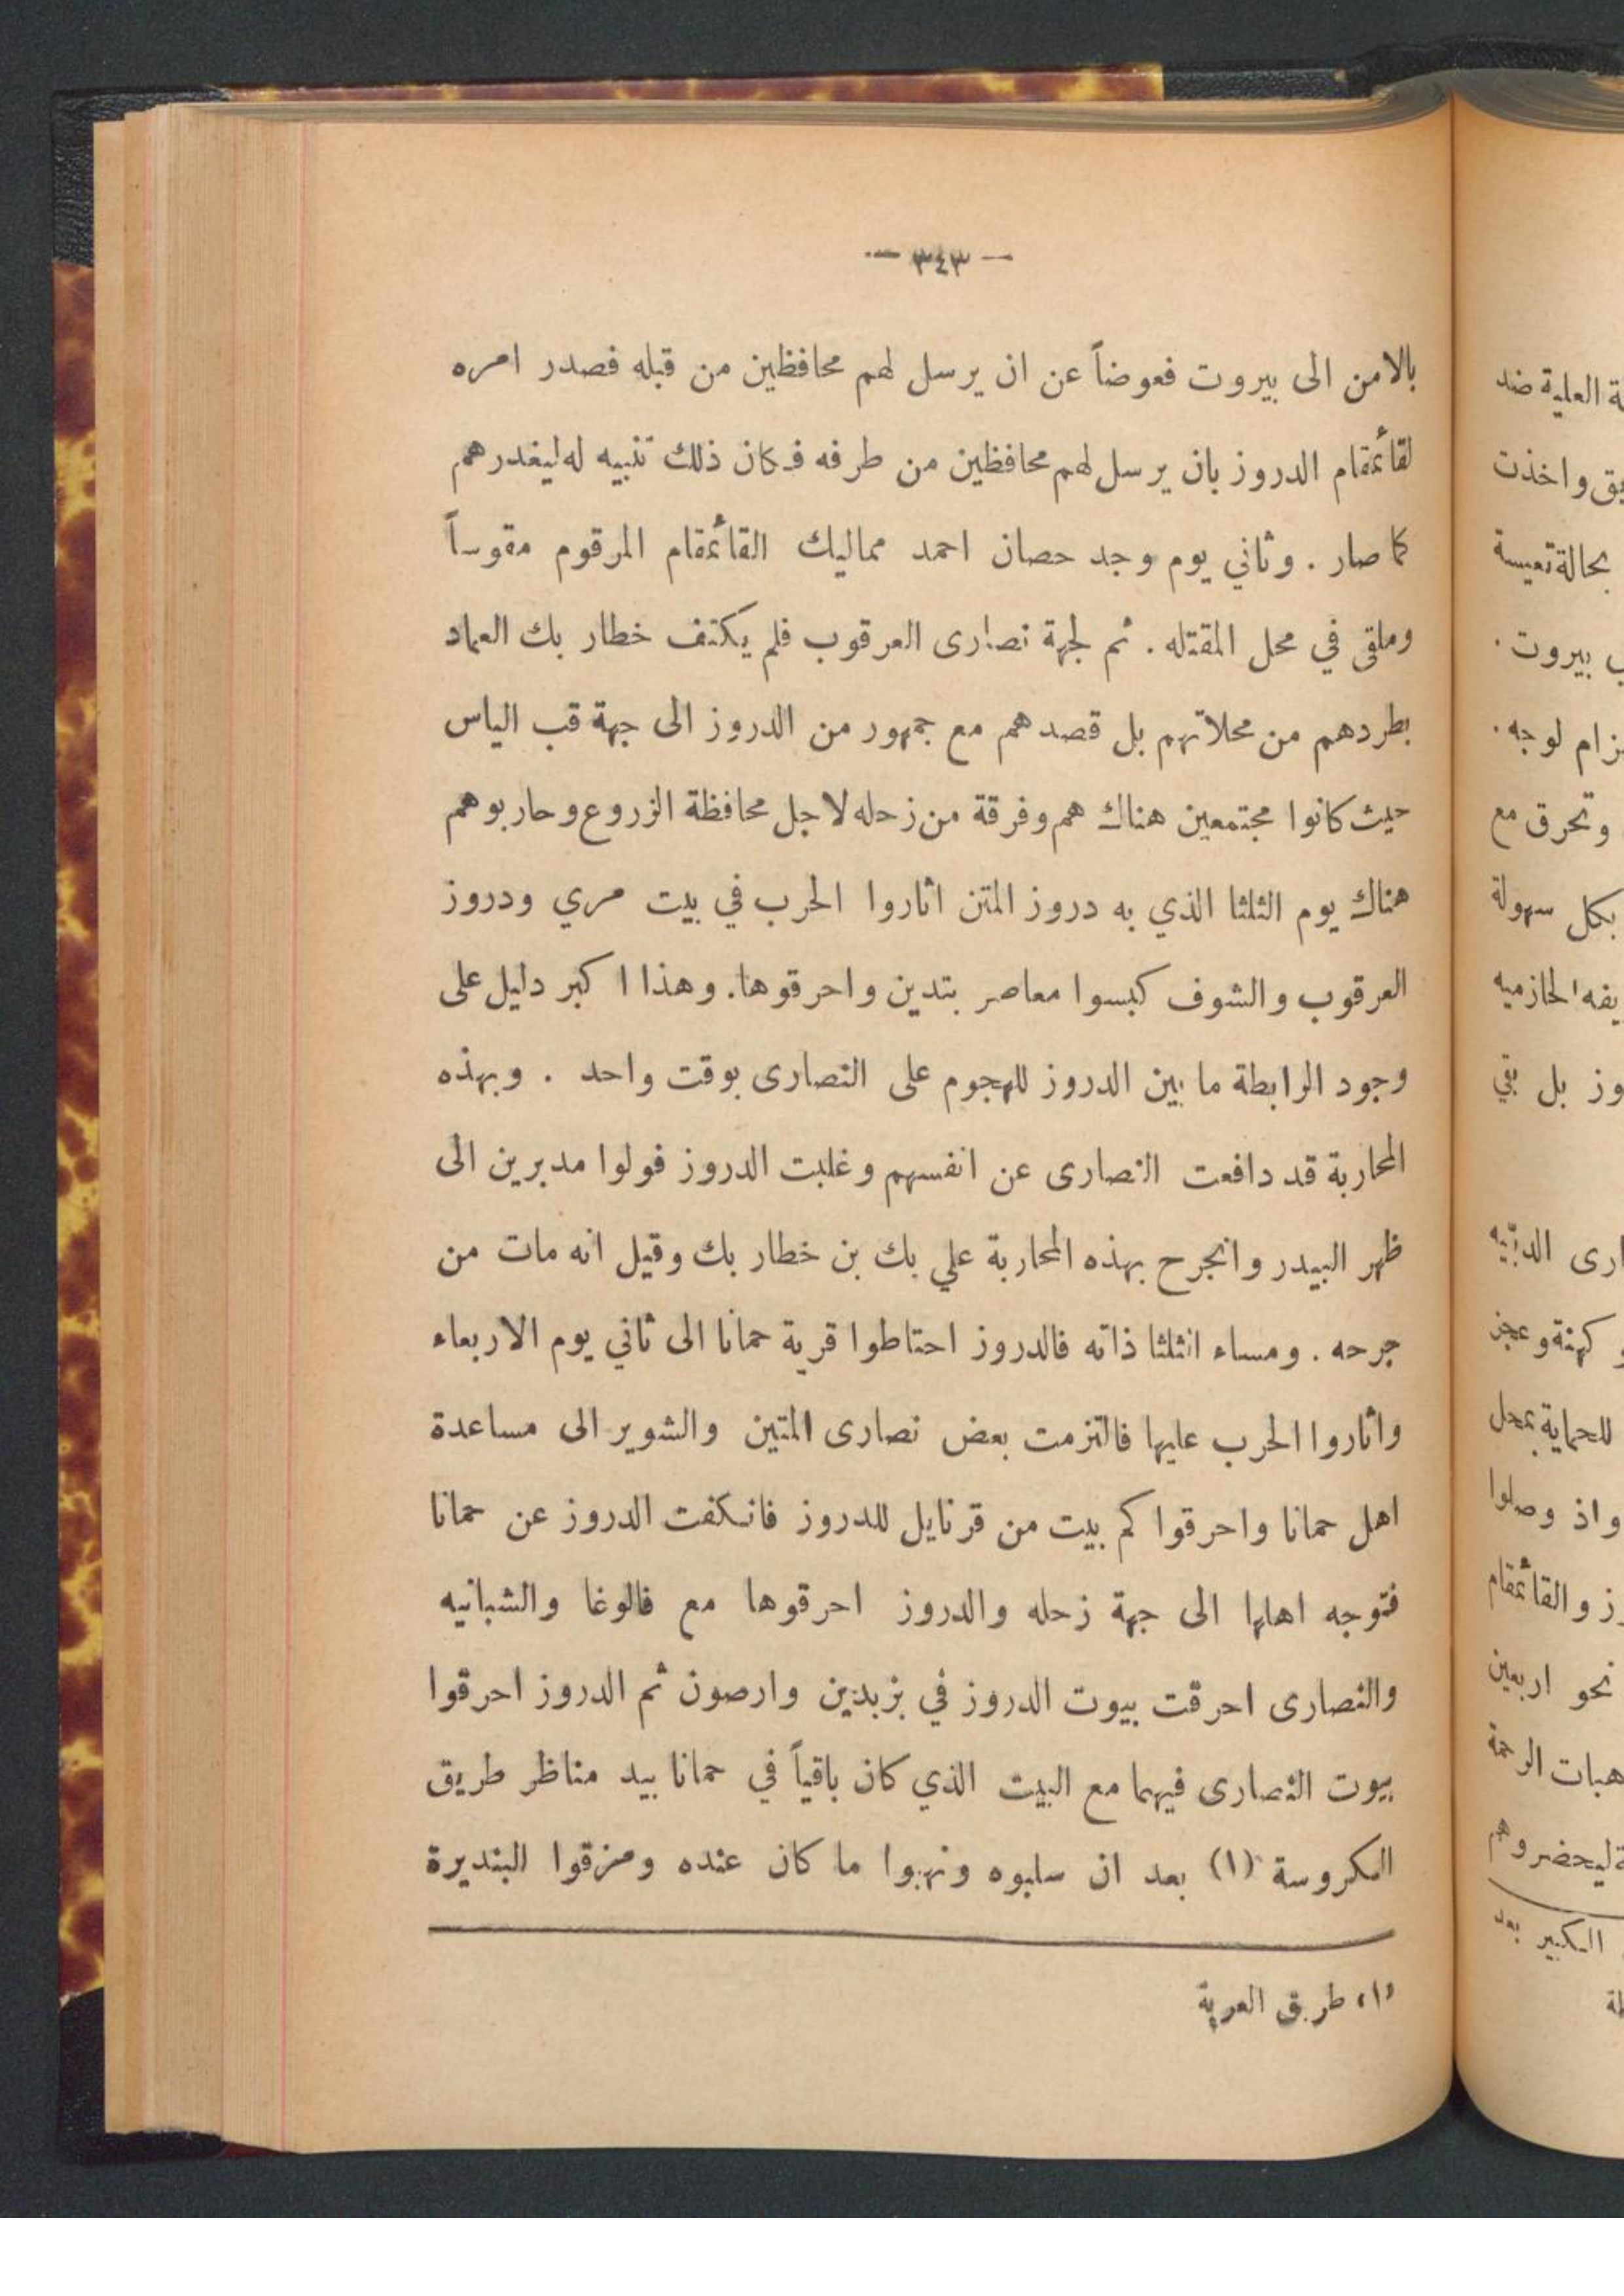 — ٣٤٣ —
بالامن الى بيروت فعوضاً عن ان يرسل لهم محافظين من قبله فصدر امره
لقائمقام الدروز بان يرسل لهم محافظين من طرفه فكان ذلك تنبيه له ليغدرهم
كما صار . وثاني يوم وجد حصان احمد مماليك القائمقام المرقوم مقوساً
وملقى في محل المقتله . ثم لجهة نصارى العرقوب فلم يكتف خطار بك العماد
بطردهم من محلاتهم بل قصدهم مع جمهور من الدروز الى جهة قب الياس
حيث كانوا مجتمعين هناك هم وفرقة من زحله لاجل محافظة الزروع وحاربوهم
هناك يوم الثلثا الذي به دروز المتن اثاروا الحرب في بيت مري ودروز
العرقوب والشوف كبسوا معاصر بتدين واحرقوها. وهذا اكبر دليل على
وجود الرابطة ما بين الدروز للهجوم على النصارى بوقت واحد . وبهذه
المحاربة قد دافعت النصارى عن انفسهم وغلبت الدروز فولوا مدبرين الى
ظهر البيدر وانجرح بهذه المحاربة علي بك بن خطار بك وقيل انه مات من
جرحه . ومساء الثلثا ذاته فالدروز احتاطوا قرية حمانا الى ثاني يوم الاربعاء
واثاروا الحرب عليها فالتزمت بعض نصارى المتين والشوير الى مساعدة
اهل حمانا واحرقوا كم بيت من قرنايل للدروز فانكفت الدروز عن حمانا
فتوجه اهلها الى جهة زحله والدروز احرقوها مع فالوغا والشبانيه
والنصارى احرقت بيوت الدروز في بزبدين وارصون ثم الدروز احرقوا
بيوت النصارى فيهما مع البيت الذي كان باقياً في حمانا بيد مناظر طريق
الكروسة (١) بعد ان سلبوه ونهبوا ما كان عنده ومزقوا البنديرة
(١) طريق العربة
ة العلية ضد
يق واخذت
بحالة تعيسة
ب بيروت .
زام لوجه .
وتحرق مع
بكل سهولة
يفه الحازميه
وز بل بقي
ارى الدبّيه
و كهنة وعجز
للحماية بمحل
واذ وصلوا
ز والقائمقام
نحو اربعين
هبات الرحمة
ة ليحضروهم
الكبير بعد
لة